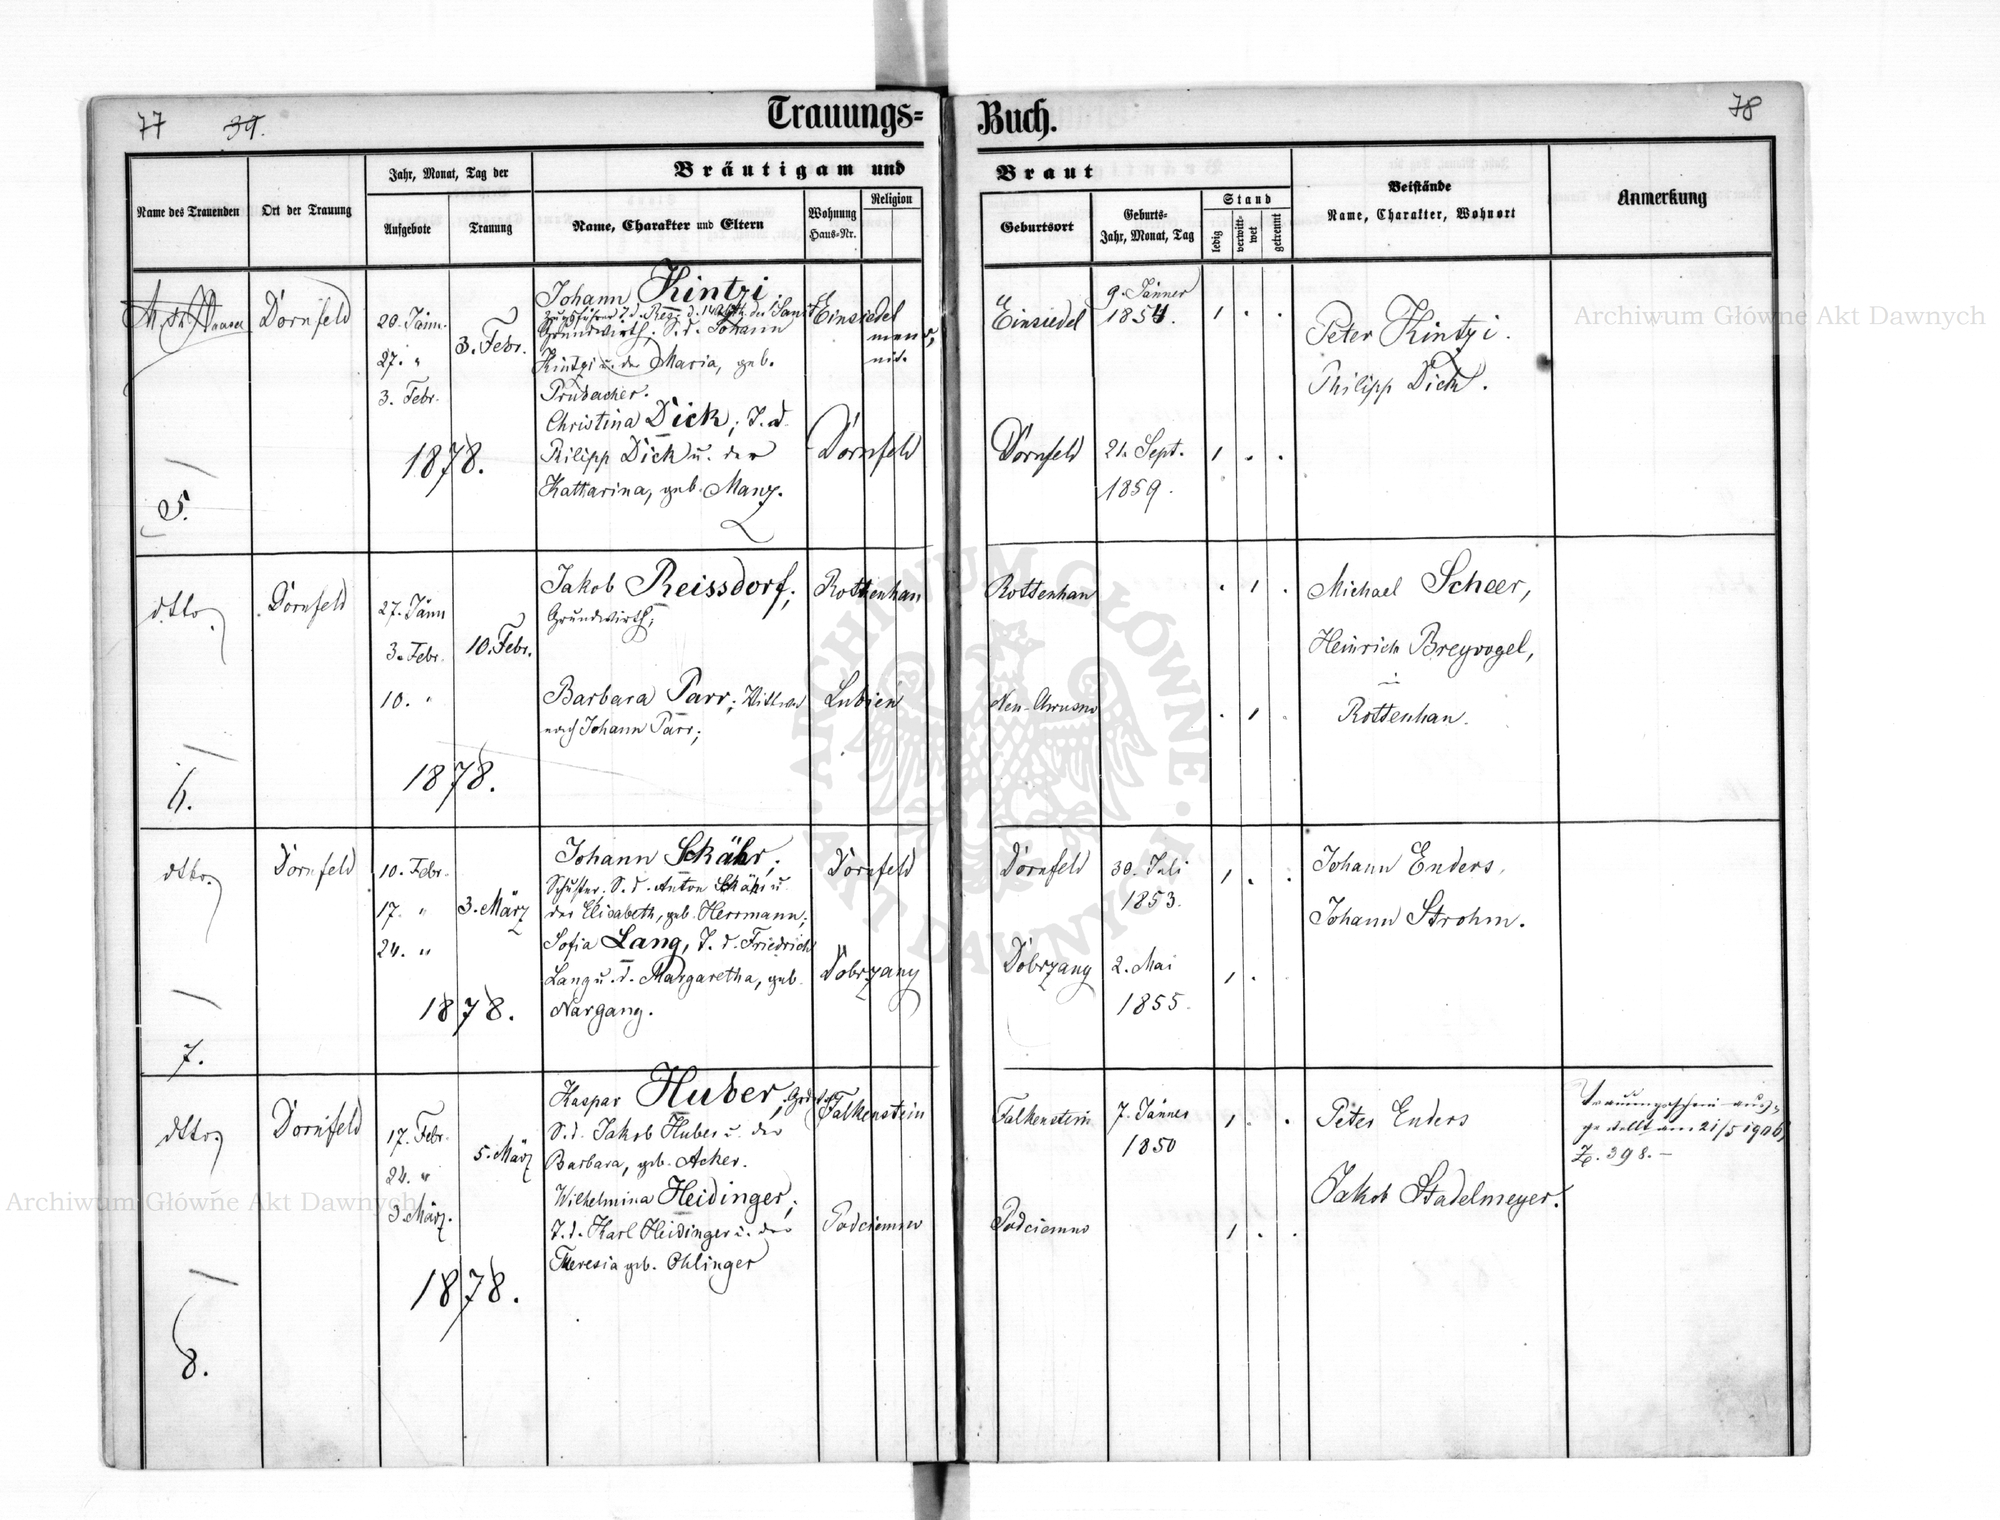 77 39.
Trauungs= Buch.
78
Name des Trauenden
Ort der Trauung
Jahr, Monat, Tag der
Aufgebote
Trauung
Bräutigam und Braut
Name, Charakter und Eltern
Wohnung
Haus-Nr.
Religion
Geburtsort
Geburts-
Jahr, Monat, Tag
Stand
ledig
verwitt-
wet
getrennt
Beistände
Name, Charakter, Wohnort
Anmerkung
Dornfeld
20. Jänn.
27. "
3. Febr.
3. Febr.
1878.
5.
Johann Kintzi
Grundwirth; S. d. Johann
Kintzi u. der Maria, geb.
Brubacher.
Christina Dick; T. d.
Philipp Dick u. der
Katharina, geb. Manz.
Einsiedel
menno
nit.
Dornfeld
Einsiedel
9. Jänner
1854.
1 . .
Dornfeld
21. Sept.
1859.
1 . .
Peter Kintzi.
Philipp Dick.
dtto.
Dornfeld
27. Jänn
3. Febr.
10. "
10. Febr.
1878.
6.
Jakob Reissdorf;
Grundwirth;
Barbara Parr; Wittwe
nach Johann Parr;
Rottenhan
Lubien
Rottenhan
. 1 .
Neu-Chrusno
. 1 .
Michael Scheer,
Heinrich Breyvogel,
in
Rottenhan.
dtto.
Dornfeld
10. Febr.
17. "
24. "
3. März
1878.
7.
Johann Skähr;
Schuster. S. d. Anton Skähr u.
der Elisabeth, geb. Herrmann;
Sofia Lang, T. d. Friedrich
Lang u. d. Margaretha, geb.
Nargang.
Dornfeld
Dobrzany
Dornfeld
30. Juli
1853.
1 . .
Dobrzany
2. Mai
1855.
1 . .
Johann Enders,
Johann Strohm.
dtto.
Dornfeld
17. Febr.
24. "
3. März.
5. März
1878.
8.
Kaspar Huber,
S. d. Jakob Huber u. der
Barbara, geb. Acker.
Wilhelmina Heidinger;
T. d. Karl Heidinger u. der
Theresia geb. Ohlinger
Falkenstein
Podciemno
Falkenstein
7. Jänner
1850
1 . .
Podciemno
1 . .
Peter Enders
Jakob Stadelmeyer.
Trauungsschein aus-
gestellt am 21/5 1906,
Z. 398. –
Archiwum Główne Akt Dawnych
Archiwum Główne Akt Dawnych
· ARCHIWUM GŁÓWNE · AKT DAWNYCH